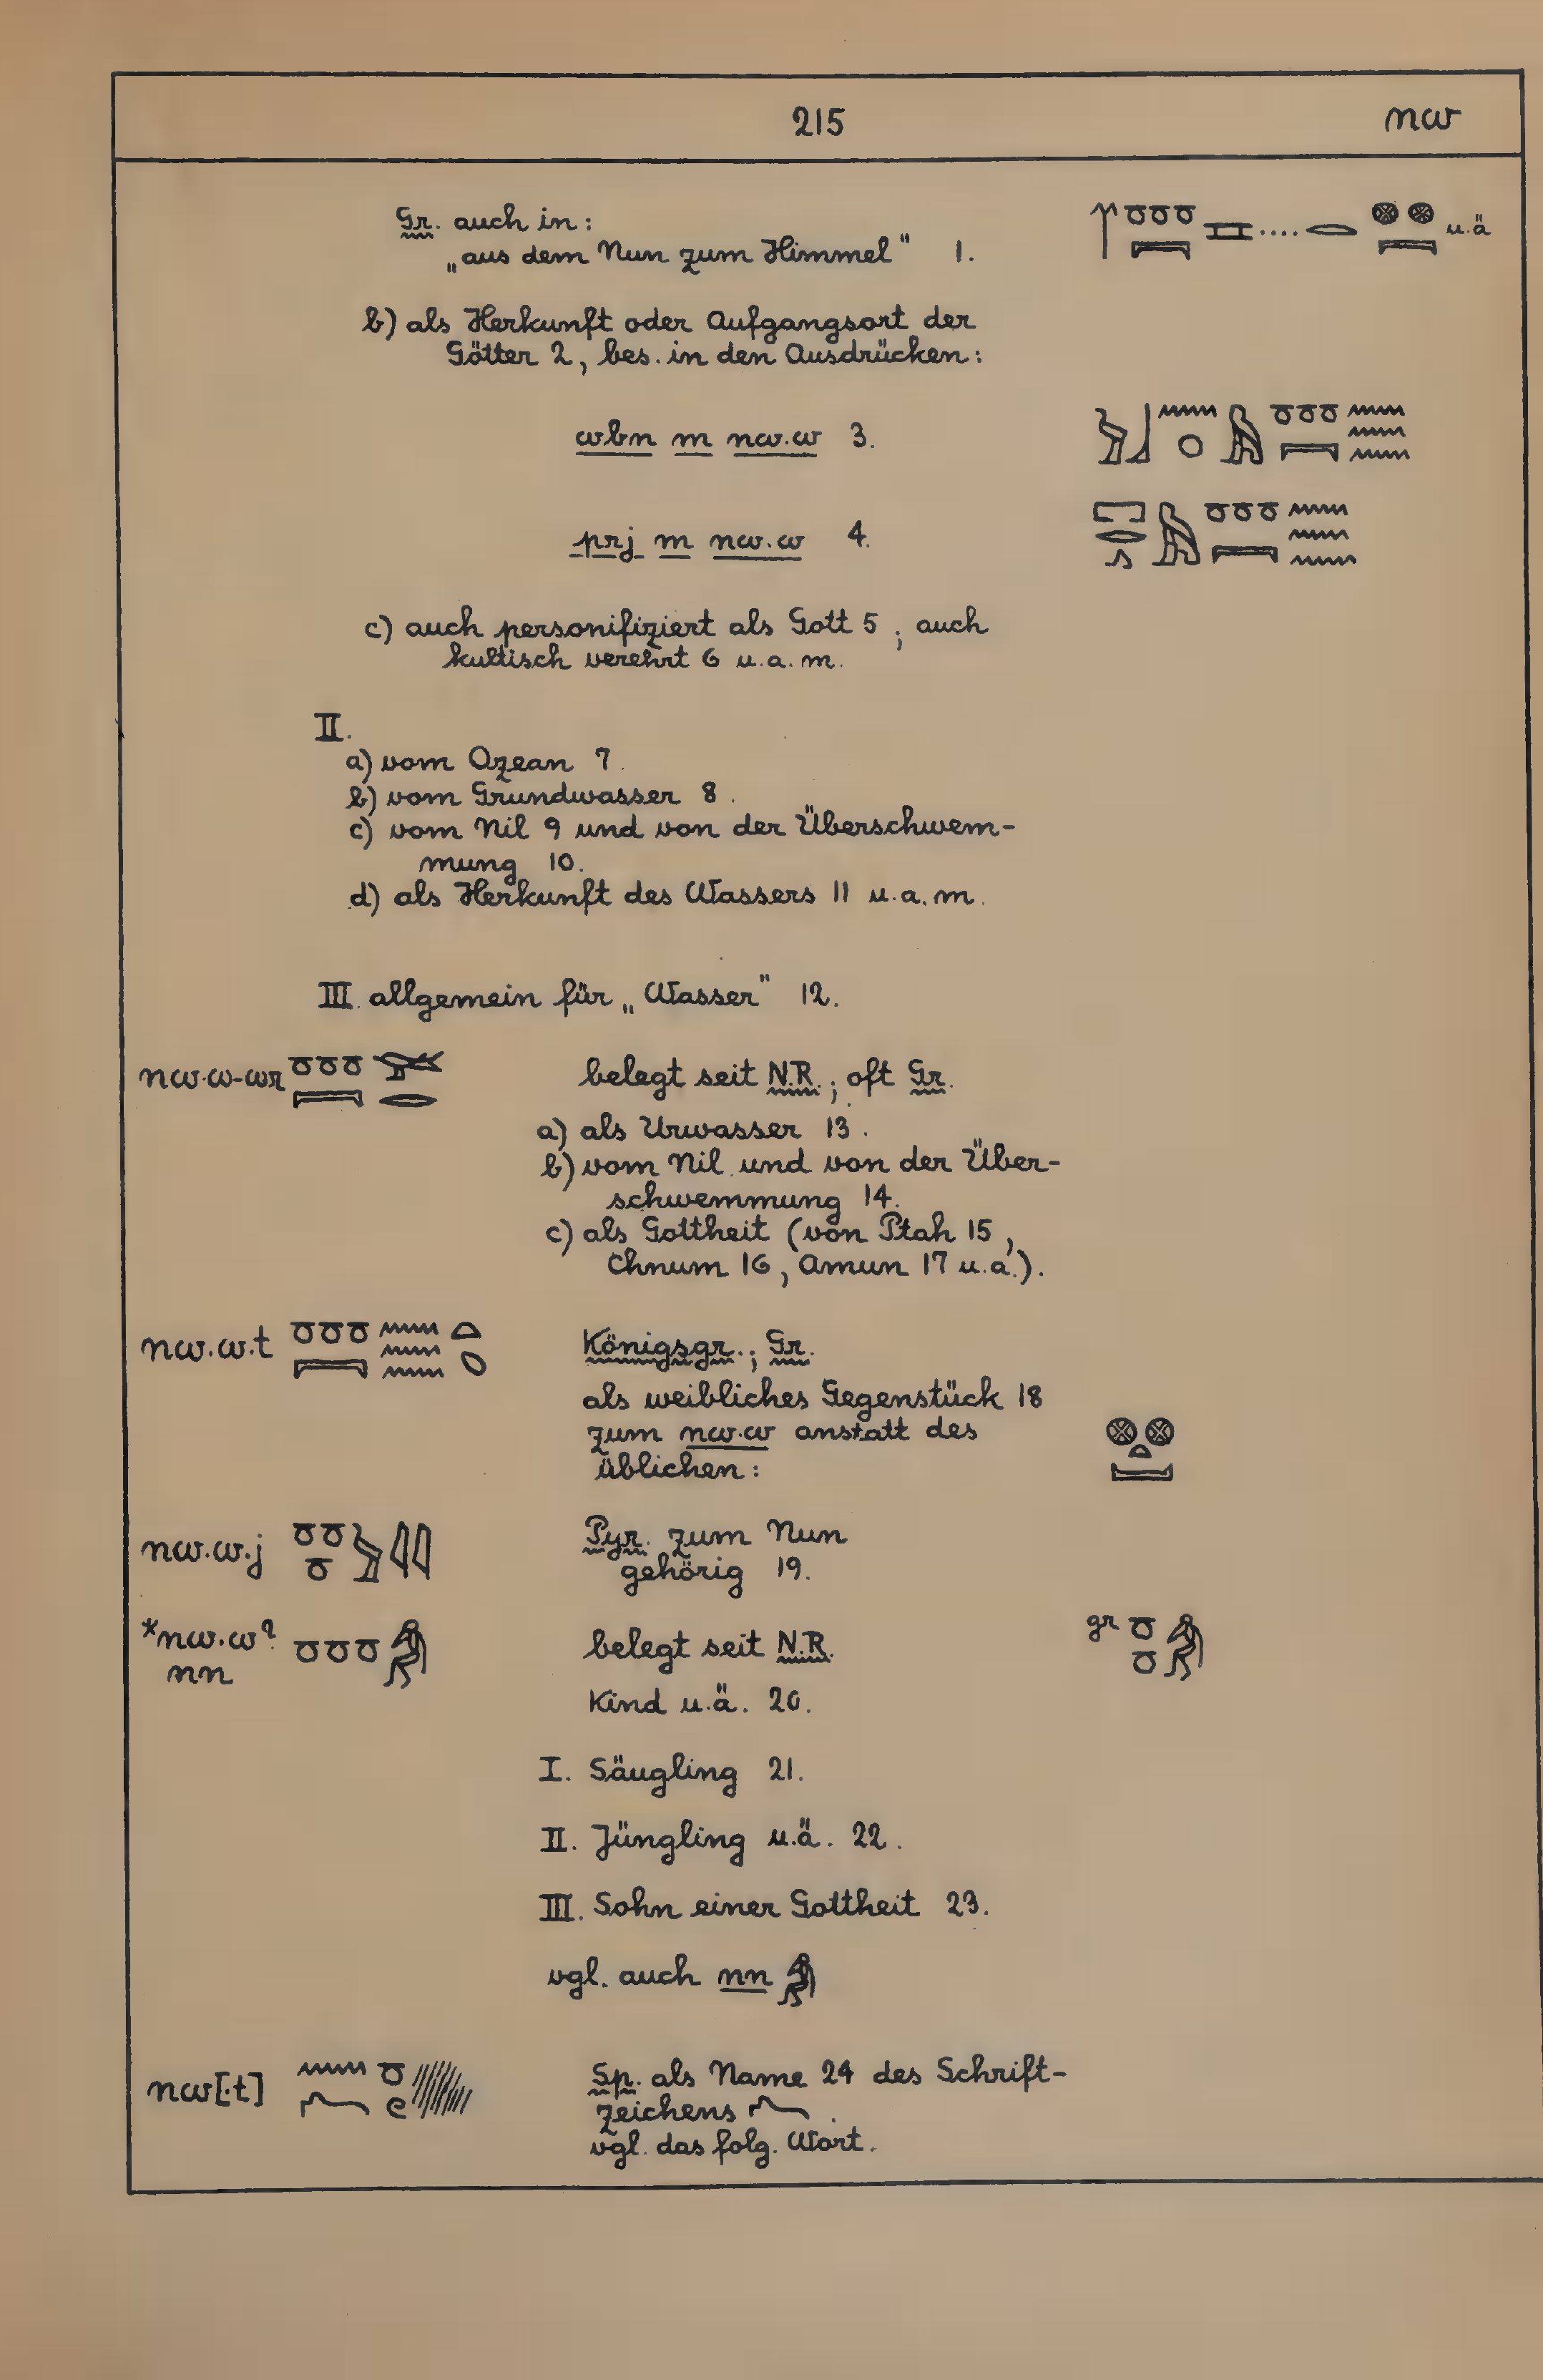 215 nw
Gr. auch in:
„aus dem Nun zum Himmel“ 1. u.ä
b) als Herkunft oder Aufgangsort der
Götter 2, bes. in den Ausdrücken:
wbn m nw.w 3.
prj m nw.w 4.
c) auch personifiziert als Gott 5 ; auch
kultisch verehrt 6 u.a.m.
II.
a) vom Ozean 7.
b) vom Grundwasser 8.
c) vom Nil 9 und von der Überschwem-
mung 10.
d) als Herkunft des Wassers 11 u.a.m.
III. allgemein für „Wasser“ 12.
nw.w-wr belegt seit N.R.; oft Gr.
a) als Urwasser 13.
b) vom Nil und von der Über-
schwemmung 14.
c) als Gottheit (von Ptah 15,
Chnum 16, Amun 17 u.a.).
nw.w.t Königsgr.; Gr.
als weibliches Gegenstück 18
zum nw.w anstatt des
üblichen:
nw.w.j Pyr. zum Nun
gehörig 19.
*nw.w? belegt seit N.R. gr
nn
Kind u.ä. 20.
I. Säugling 21.
II. Jüngling u.ä. 22.
III. Sohn einer Gottheit 23.
vgl. auch nn
nw[.t] Sp. als Name 24 des Schrift-
zeichens .
vgl. das folg. Wort.